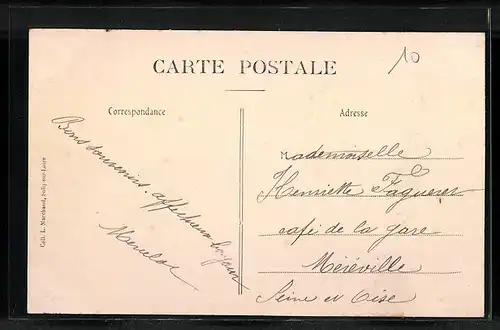 10
CARTE POSTALE
Correspondance
Adresse
Bons souvenirs. affectueux bonjour
Mademoiselle
Henriette
café de la gare
Méréville
Seine et Oise
Coll. L. Marchand, Sully-sur-Loire